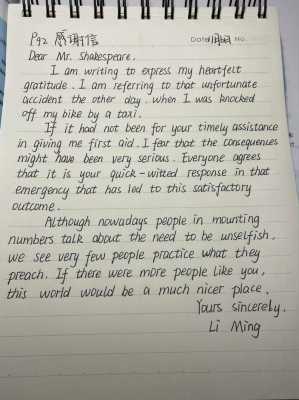 P92 感谢信
Date No.
Dear Mr. Shakespeare.
I am writing to express my heartfelt
gratitude. I am referring to that unfortunate
accident the other day. when I was knocked
off my bike by a taxi.
If it had not been for your timely assistance
in giving me first aid. I fear that the consequences
might have been very serious. Everyone agrees
that it is your quick-witted response in that
emergency that has led to this satisfactory
outcome.
Although nowadays people in mounting
numbers talk about the need to be unselfish.
we see very few people practice what they
preach. If there were more people like you,
this world would be a much nicer place.
Yours sincerely.
Li Ming